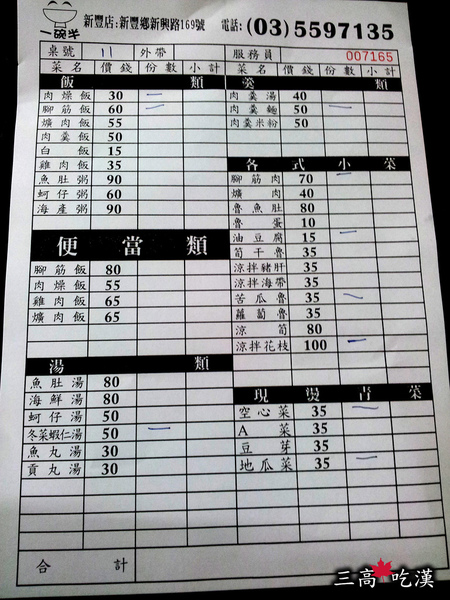 一碗半
新豐店:新豐鄉新興路169號 電話:(03)5597135
桌號 11 外帶 服務員 007165
菜名 價錢 份數 小計 菜名 價錢 份數 小計
飯類
肉燥飯 30 一
腳筋飯 60 一
爌肉飯 55
肉羹飯 50
白飯 15
雞肉飯 35
魚肚粥 90
蚵仔粥 60
海產粥 90
便當類
腳筋飯 80
肉燥飯 55
雞肉飯 65
爌肉飯 65
湯類
魚肚湯 80
海鮮湯 80
蚵仔湯 50
冬菜蝦仁湯 50 一
魚丸湯 30
貢丸湯 30
合計
羹類
肉羹湯 40
肉羹麵 50 一
肉羹米粉 50
各式小菜
腳筋肉 70 一
爌肉 40
魯魚肚 80
魯蛋 10
油豆腐 15 一
筍干魯 35
涼拌豬肝 35
涼拌海帶 35
苦瓜魯 35 一
蘿蔔魯 35
涼筍 80
涼拌花枝 100 一
現燙青菜
空心菜 35 一
A菜 35
豆芽 35
地瓜菜 35 一
三高吃漢